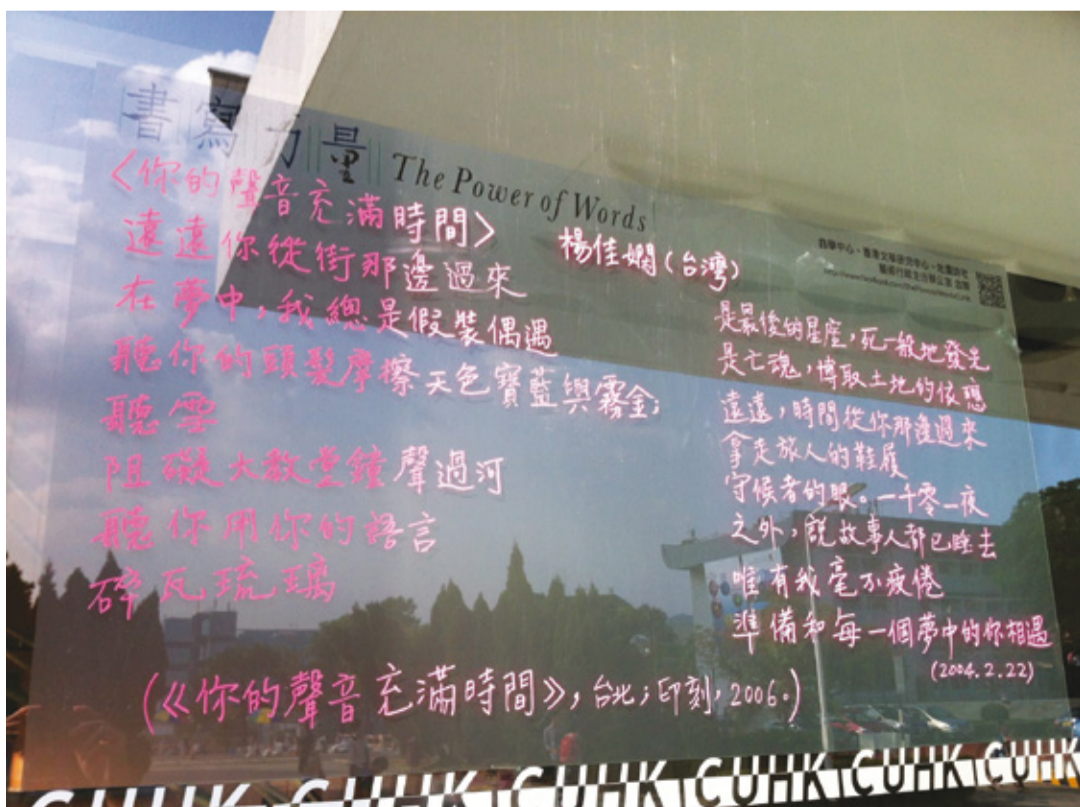 書寫力量 The Power of Words
自學中心、香港文學研究中心、吐露詩社
<你的聲音充滿時間>
楊佳嫻(台灣)
遠遠你從街那邊過來
在夢中,我總是假裝偶遇
聽你的頭髮摩擦天色寶藍與霧金;
聽雲
阻礙大教堂鐘聲過河
聽你用你的語言
碎瓦琉璃
是最後的星座,死一般地發光
是亡魂,博取土地的依戀
遠遠,時間從你那邊過來
拿走旅人的鞋履
守候者的眼。一千零一夜
之外,說故事人都已睡去
唯有我毫不疲倦
準備和每一個夢中的你相遇
(2004.2.22)
(《你的聲音充滿時間》,台北;印刻,2006.)
CUHK CUHK CUHK CUHK CUHK CUHK